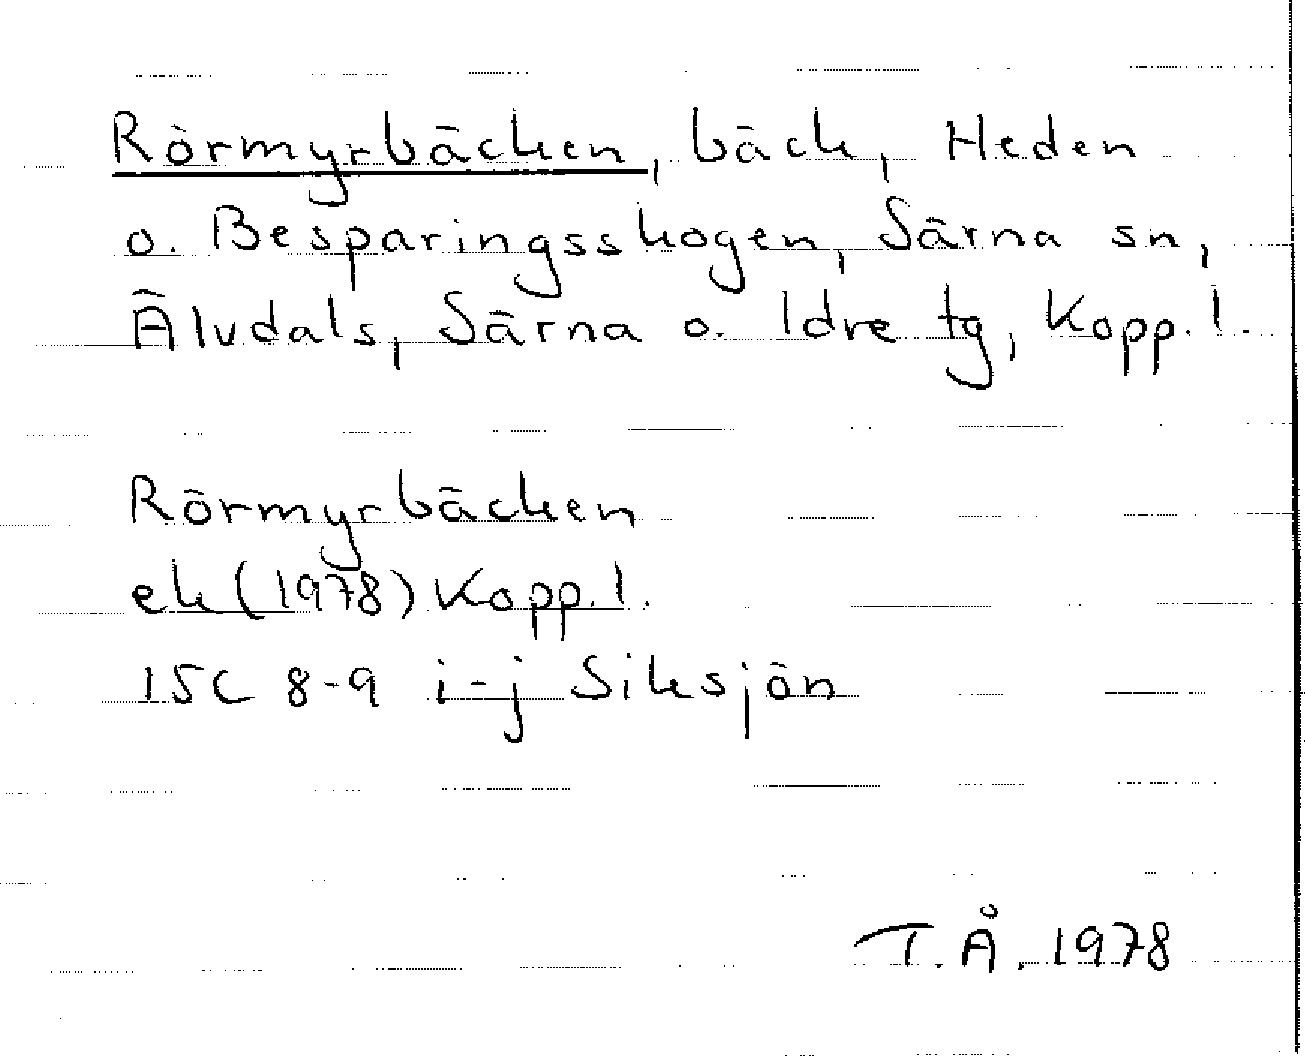 Rörmyrbäcken, bäck, Heden
o. Besparingsskogen, Särna sn,
Älvdals, Särna o. Idre tg, Kopp. l.
Rörmyrbäcken
ek (1978) Kopp. l.
15C 8-9 i-j Siksjön
T.Å. 1978